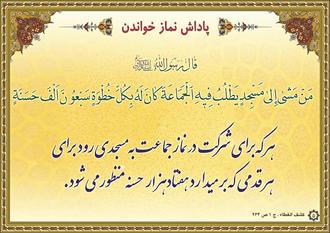 پاداش نماز خواندن
قال رسول الله ﷺ
مَنْ مَشىٰ إِلىٰ مَسْجِدٍ يَطْلُبُ فِيهِ الْجَمَاعَةَ كَانَ لَهُ بِكُلِّ خُطْوَةٍ سَبْعُونَ أَلْفَ حَسَنَةٍ
هر که برای شرکت در نماز جماعت به مسجدی رود برای
هر قدمی که بر میدارد هفتاد هزار حسنه منظور می شود.
کشف الغطاء، ج ۱ ص ۲۶۳